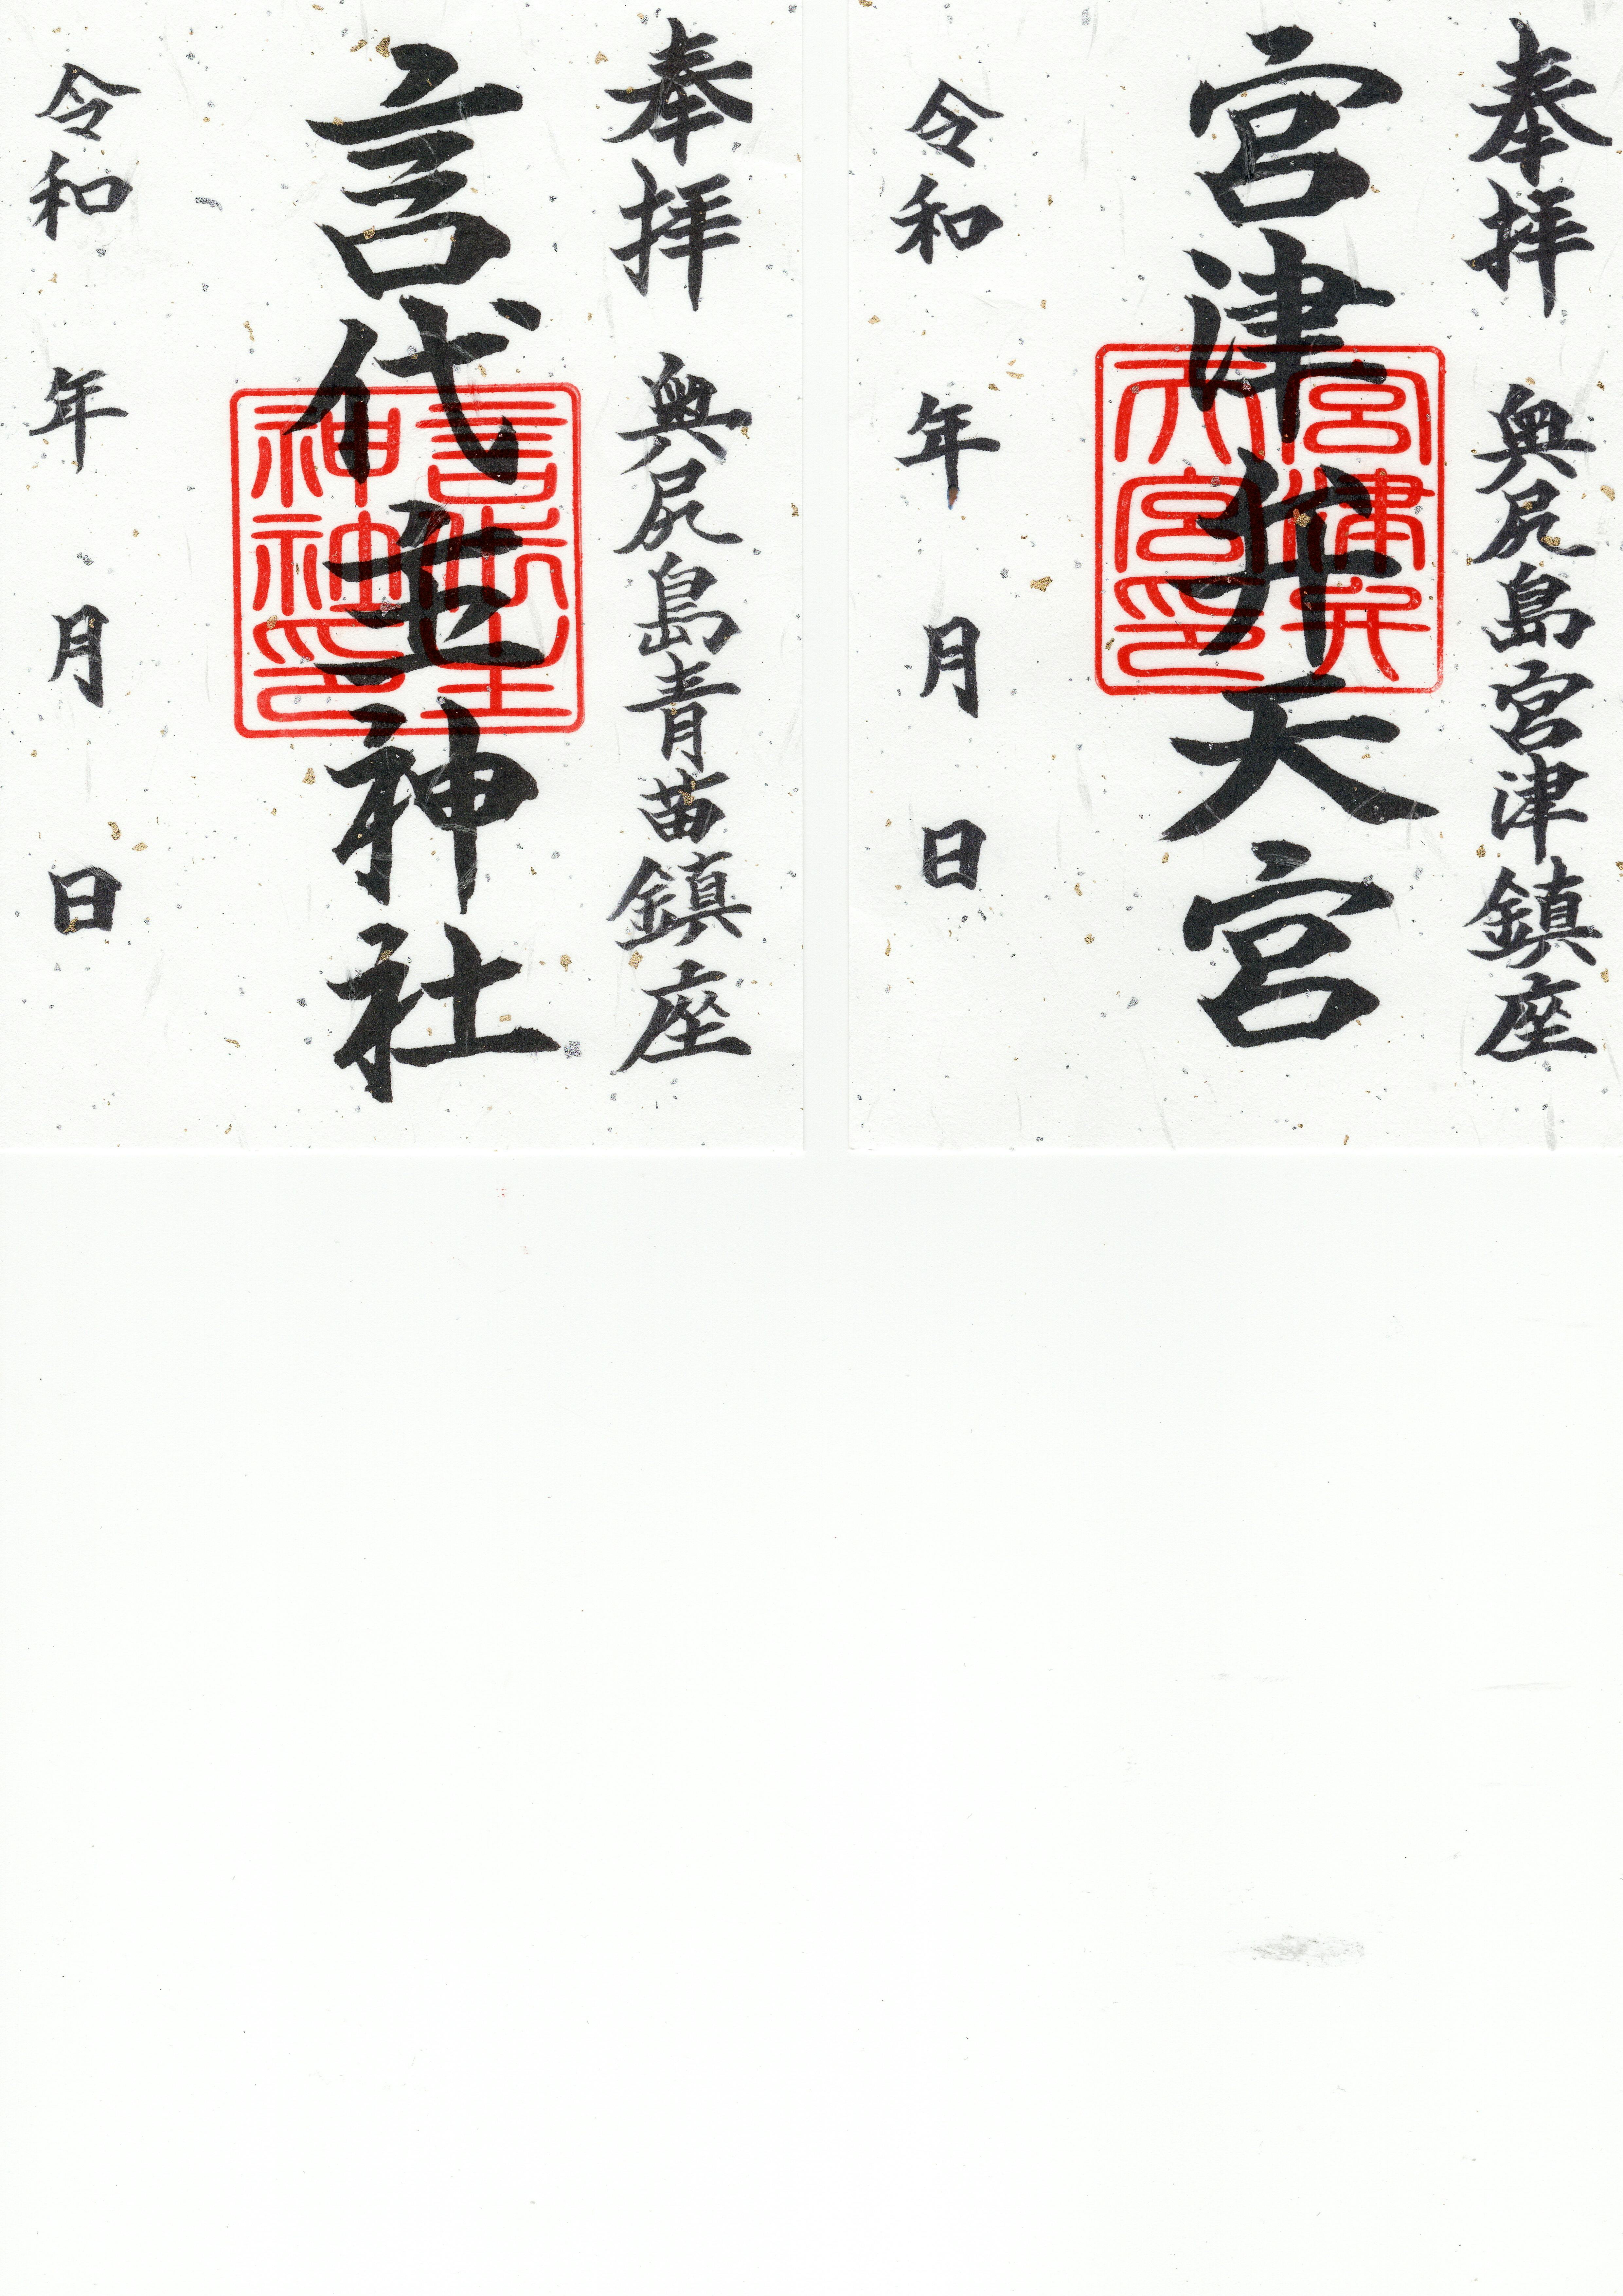 奉拝 奥尻島宮津鎮座
宮津弁天宮
宮津弁
天宮印
令和 年 月 日
奉拝 奥尻島青苗鎮座
言代主神社
言代主
神社印
令和 年 月 日